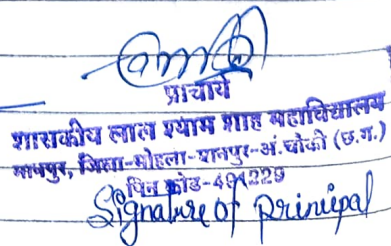 प्राचार्य
शासकीय लाल श्याम शाह महाविद्यालय
मानपुर, जिला-मोहला-मानपुर-अं.चौकी (छ.ग.)
पिन कोड-491229
Signature of principal